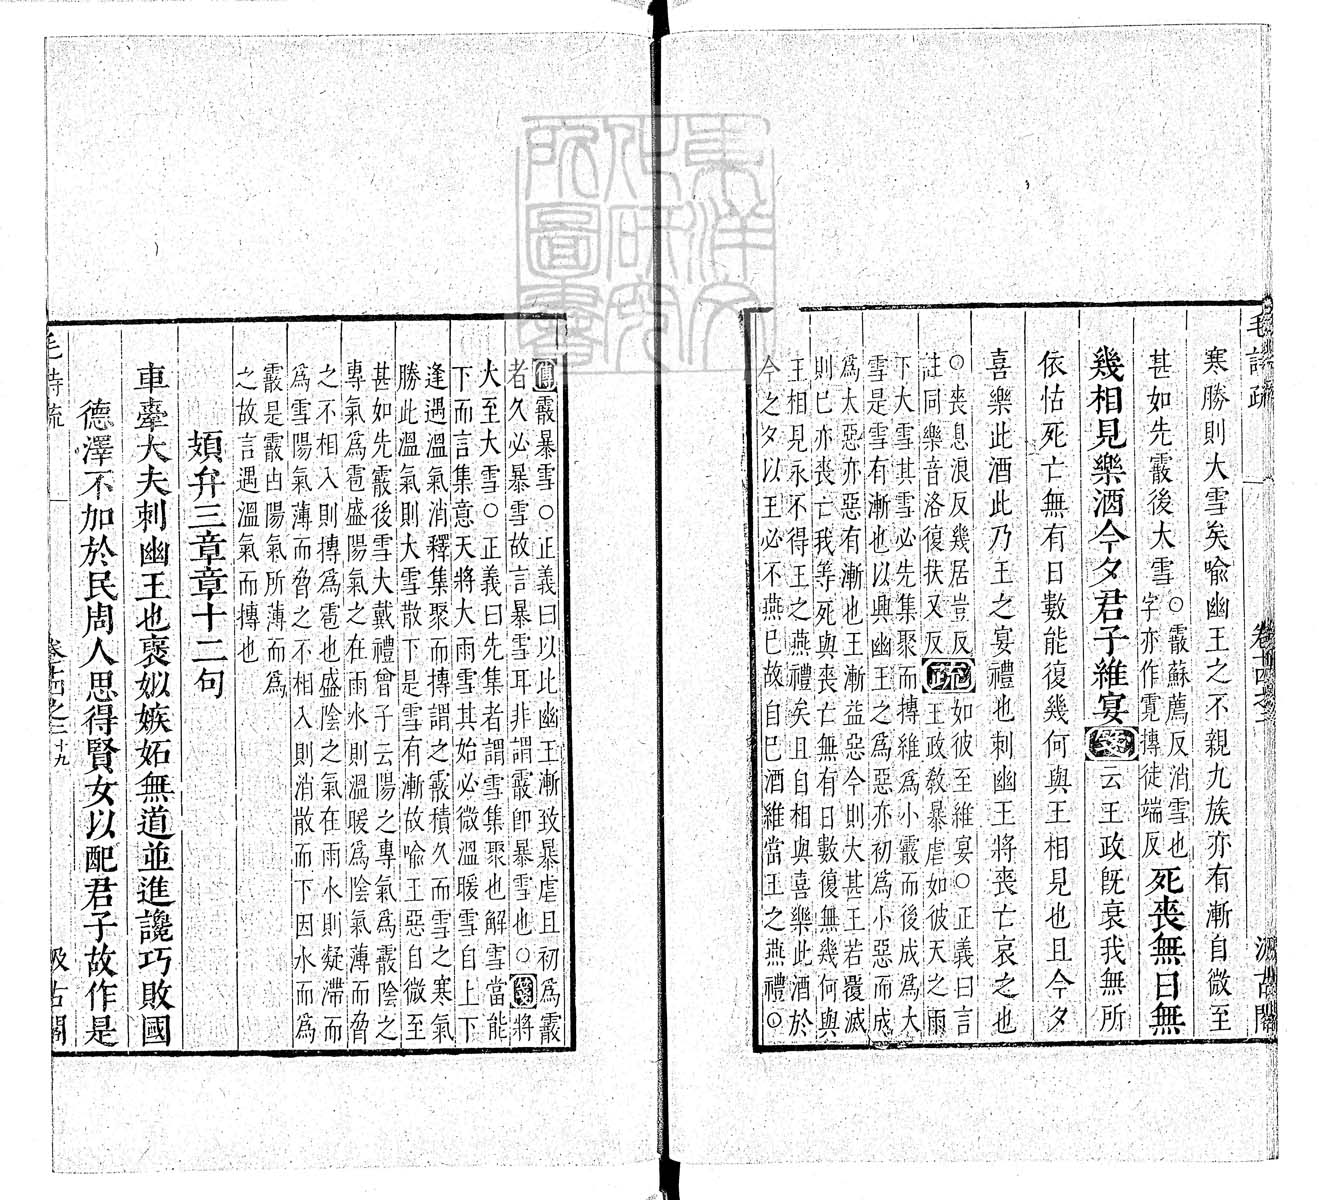 毛詩疏 卷十四之二 汲古閣
寒勝則大雪矣喻幽王之不親九族亦有漸自微至
甚如先霰後大雪○霰蘇薦反消雪也
字亦作霓摶徒端反
死喪無日無
幾相見樂酒今夕君子維宴箋云王政旣衰我無所
依怙死亡無有日數能復幾何與王相見也且今夕
喜樂此酒此乃王之宴禮也刺幽王將喪亡哀之也
○喪息浪反幾居豈反
註同樂音洛復扶又反
疏如彼至維宴○正義曰言
王政敎暴虐如彼天之雨
下大雪其雪必先集聚而摶維爲小霰而後成爲大
雪是雪有漸也以興幽王之爲惡亦初爲小惡而成
爲大惡亦惡有漸也王漸益惡今則大甚王若覆滅
則已亦喪亡我等死與喪亡無有日數復無幾何與
王相見永不得王之燕禮矣且自相與喜樂此酒於
今之夕以王必不燕已故自巳酒維當王之燕禮○
傳霰暴雪○正義曰以比幽王漸致暴虐且初爲霰
者久必暴雪故言暴雪耳非謂霰卽暴雪也○箋將
大至大雪○正義曰先集者謂雪集聚也解雪當能
下而言集意天將大雨雪其始必微溫暖雪自上下
逢遇溫氣消釋集聚而摶謂之霰積久而雪之寒氣
勝此溫氣則大雪散下是雪有漸故喻王惡自微至
甚如先霰後雪大戴禮曾子云陽之專氣爲霰陰之
專氣爲雹盛陽氣之在雨水則溫暖爲陰氣薄而脅
之不相入則摶爲雹也盛陰之氣在雨水則凝滯而
爲雪陽氣薄而脅之不相入則消散而下因水而爲
霰是霰由陽氣所薄而爲
之故言遇溫氣而摶也
頍弁三章章十二句
車舝大夫刺幽王也褒姒嫉妬無道並進讒巧敗國
德澤不加於民周人思得賢女以配君子故作是
毛詩疏 卷十四之二 十九 汲古閣